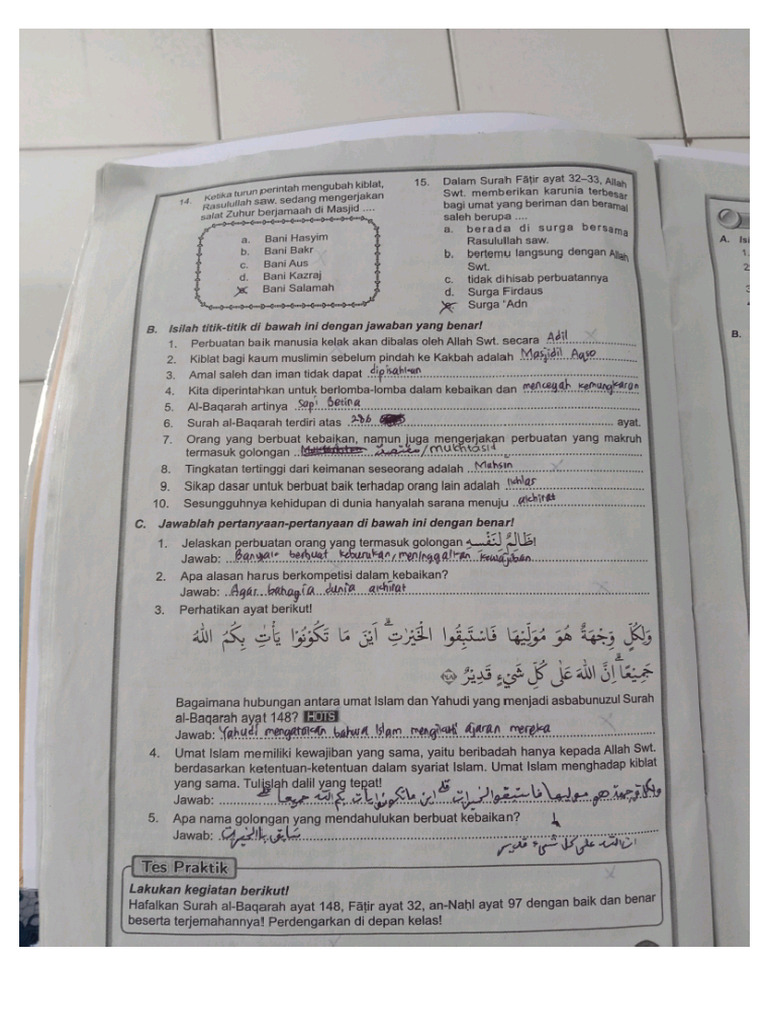 14. Ketika turun perintah mengubah kiblat,
Rasulullah saw. sedang mengerjakan
salat Zuhur berjamaah di Masjid ....
a. Bani Hasyim
b. Bani Bakr
c. Bani Aus
d. Bani Kazraj
e. Bani Salamah
15. Dalam Surah Fāṭir ayat 32–33, Allah
Swt. memberikan karunia terbesar
bagi umat yang beriman dan beramal
saleh berupa ....
a. berada di surga bersama
Rasulullah saw.
b. bertemu langsung dengan Allah
Swt.
c. tidak dihisab perbuatannya
d. Surga Firdaus
Surga ‘Adn
B. Isilah titik-titik di bawah ini dengan jawaban yang benar!
1. Perbuatan baik manusia kelak akan dibalas oleh Allah Swt. secara Adil
2. Kiblat bagi kaum muslimin sebelum pindah ke Kakbah adalah Masjidil Aqso
3. Amal saleh dan iman tidak dapat dipisahkan
4. Kita diperintahkan untuk berlomba-lomba dalam kebaikan dan mencegah kemungkaran
5. Al-Baqarah artinya Sapi Betina
6. Surah al-Baqarah terdiri atas 286 ayat.
7. Orang yang berbuat kebaikan, namun juga mengerjakan perbuatan yang makruh
termasuk golongan مقتصد/mukhtasid
8. Tingkatan tertinggi dari keimanan seseorang adalah Muhsin
9. Sikap dasar untuk berbuat baik terhadap orang lain adalah Ikhlas
10. Sesungguhnya kehidupan di dunia hanyalah sarana menuju akhirat
C. Jawablah pertanyaan-pertanyaan di bawah ini dengan benar!
1. Jelaskan perbuatan orang yang termasuk golongan ظَالِمٌ لِنَفْسِهِ!
Jawab: Banyak berbuat keburukan, meninggalkan kewajiban
2. Apa alasan harus berkompetisi dalam kebaikan?
Jawab: Agar bahagia dunia akhirat
3. Perhatikan ayat berikut!
وَلِكُلٍّ وِّجْهَةٌ هُوَ مُوَلِّيْهَا فَاسْتَبِقُوا الْخَيْرٰتِۗ اَيْنَ مَا تَكُوْنُوْا يَأْتِ بِكُمُ اللّٰهُ
جَمِيْعًاۗ اِنَّ اللّٰهَ عَلٰى كُلِّ شَيْءٍ قَدِيْرٌ ١٤٨
Bagaimana hubungan antara umat Islam dan Yahudi yang menjadi asbabunuzul Surah
al-Baqarah ayat 148? HOTS
Jawab: Yahudi mengatakan bahwa Islam mengikuti ajaran mereka
4. Umat Islam memiliki kewajiban yang sama, yaitu beribadah hanya kepada Allah Swt.
berdasarkan ketentuan-ketentuan dalam syariat Islam. Umat Islam menghadap kiblat
yang sama. Tulislah dalil yang tepat!
Jawab: ولكل وجهة هو موليها فاستبقوا الخيرات اين ما تكونوا يأت بكم الله جميعا
5. Apa nama golongan yang mendahulukan berbuat kebaikan?
ان الله على كل شيء قدير
Jawab: سابق بالخيرات
Tes Praktik
Lakukan kegiatan berikut!
Hafalkan Surah al-Baqarah ayat 148, Fāṭir ayat 32, an-Naḥl ayat 97 dengan baik dan benar
beserta terjemahannya! Perdengarkan di depan kelas!
A. Isi
1.
2.
B.